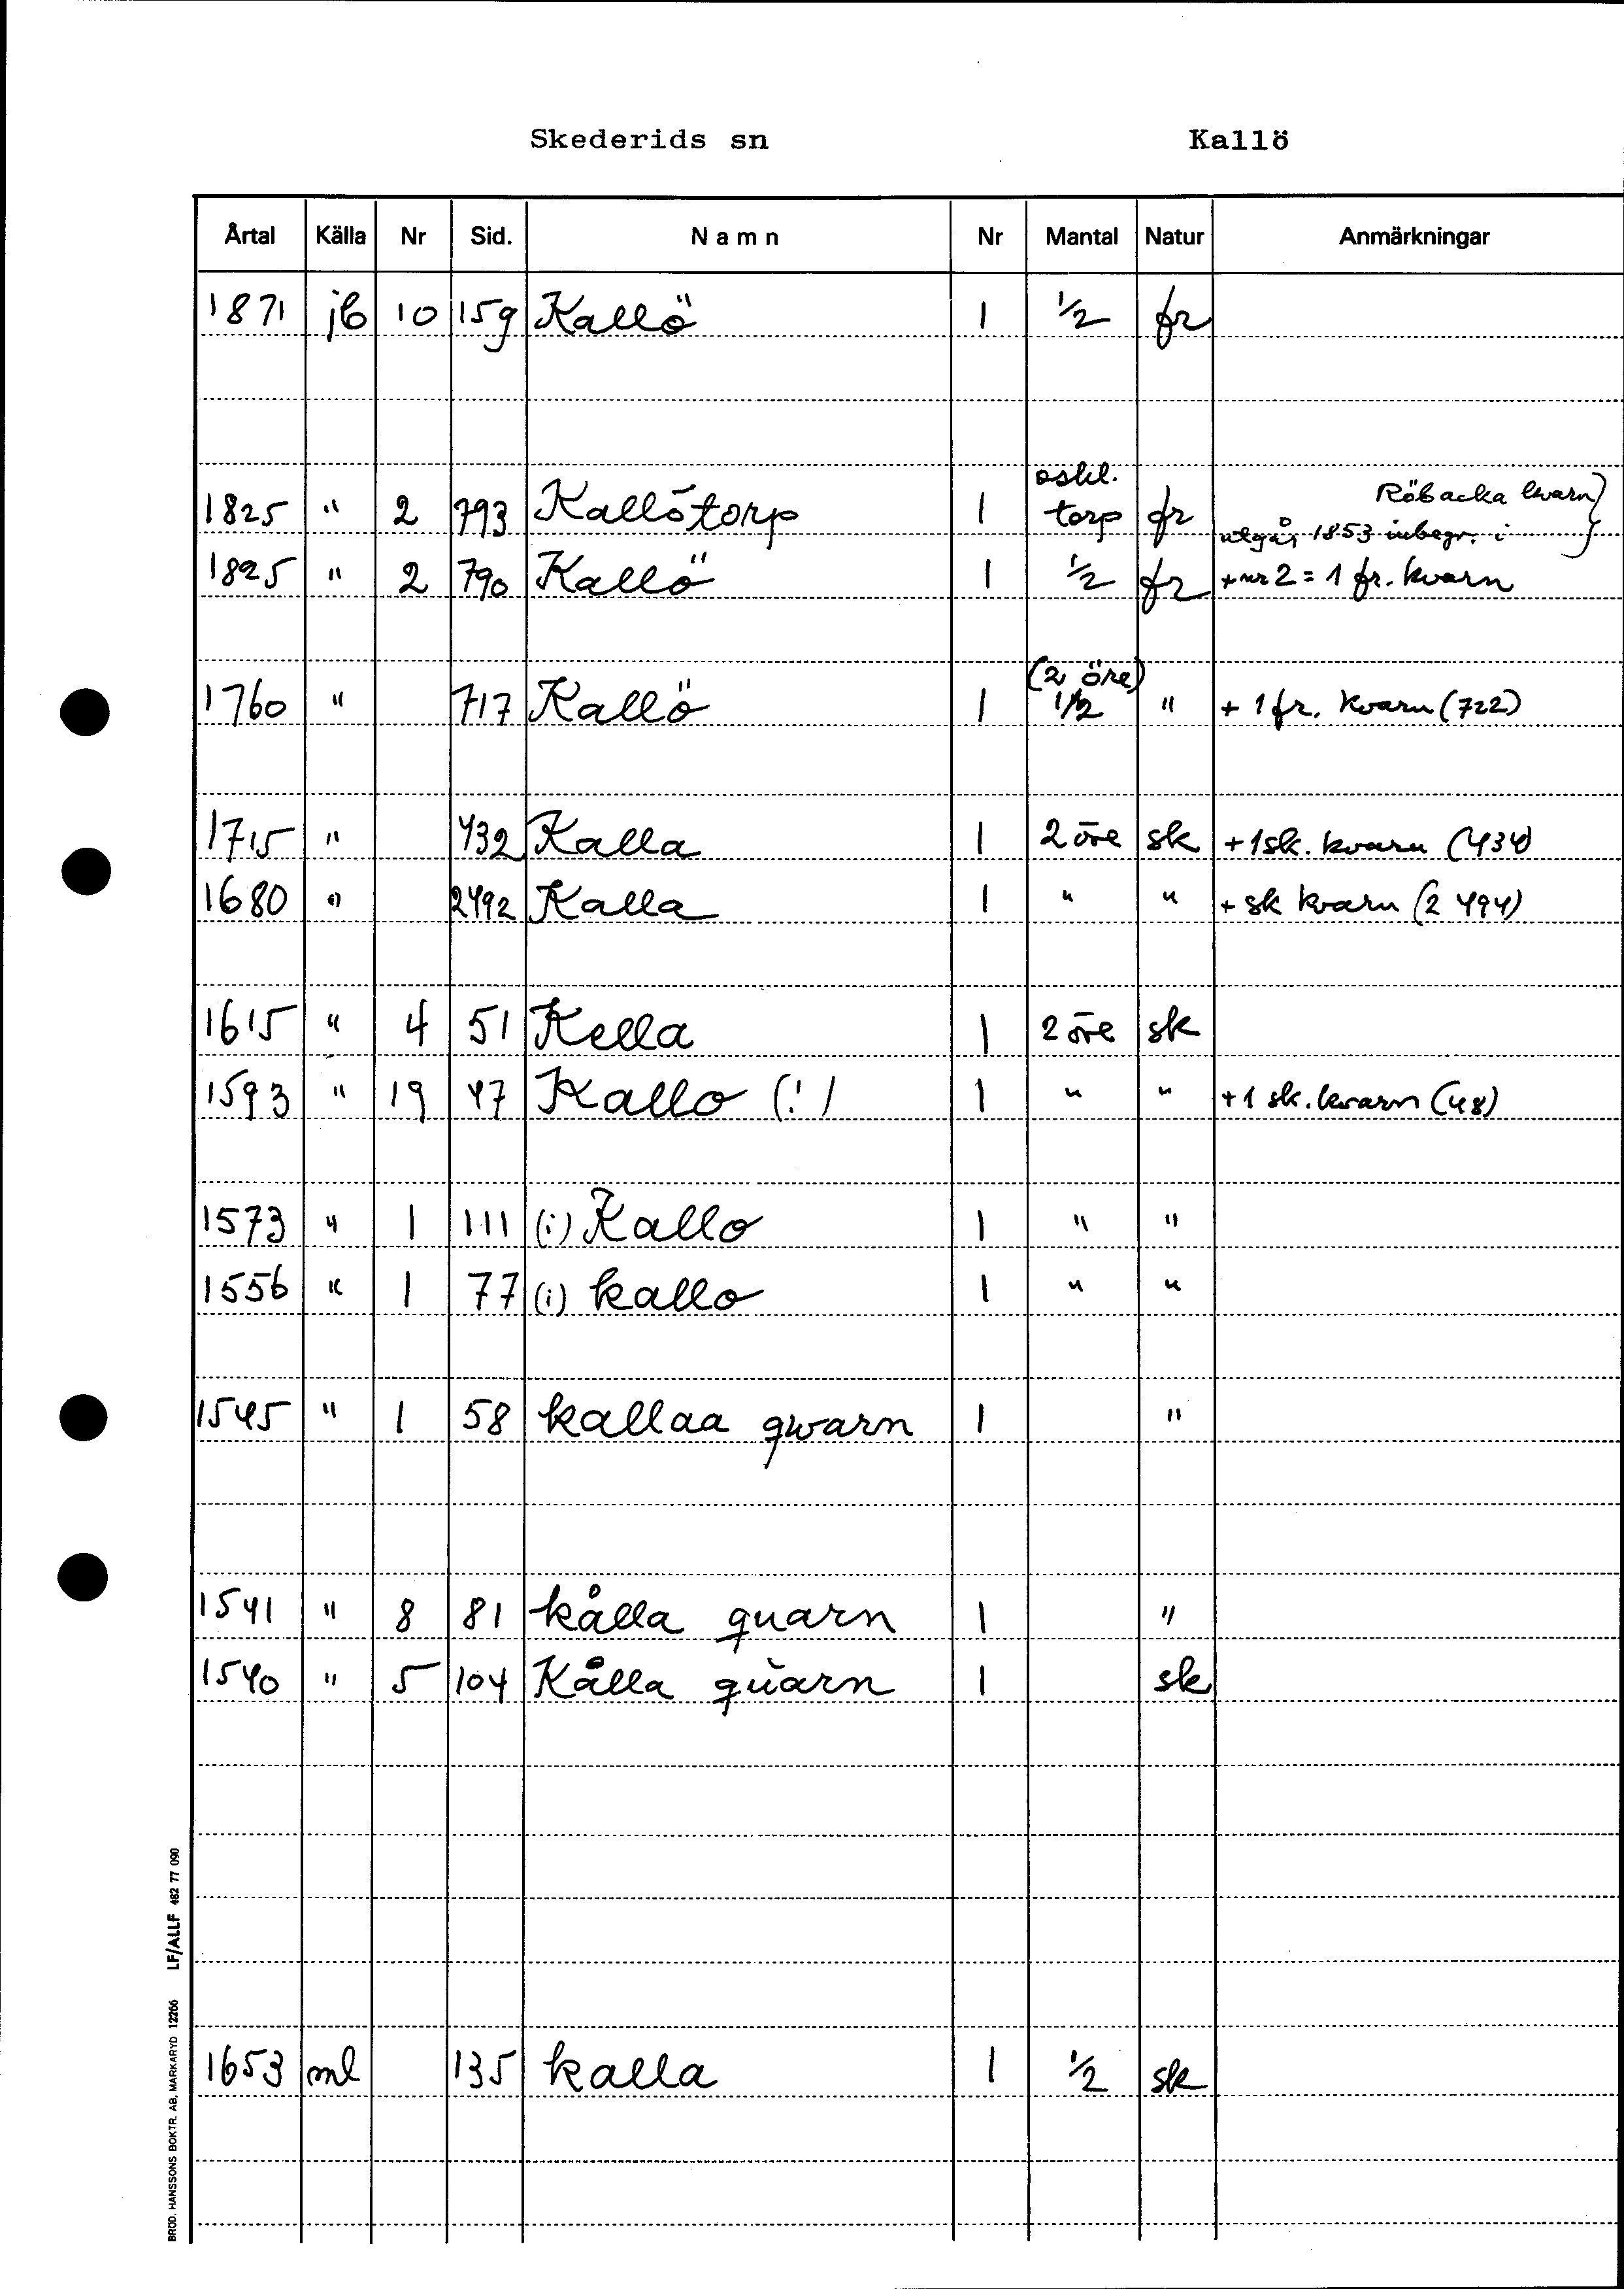 Skederids sn Kallö
Årtal Källa Nr Sid. Namn Nr Mantal Natur Anmärkningar
1871 jb 10 159 Kallö 1 1/2 fr
oskl. Röbacka kvarn}
1825 " 2 793 Kallötorp 1 torp fr utgår 1853 inbegr. i
1825 " 2 790 Kallö 1 1/2 fr + nr 2 = 1 fr. kvarn
(2 öre)
1760 " 717 Kallö 1 1/2 " + 1 fr. kvarn (722)
1715 " 432 Kalla 1 2 öre sk + 1 sk. kvarn (434)
1680 " 2492 Kalla 1 " " + sk kvarn (2 494)
1615 " 4 51 Kella 1 2 öre sk
1593 " 19 47 Kallo (!) 1 " " + 1 sk. kvarn (48)
1573 " 1 111 (i) Kallo 1 " "
1556 " 1 77 (i) kallo 1 " "
1545 " 1 58 kallaa qwarn 1 "
1541 " 8 81 kålla quarn 1 "
1540 " 5 104 Kålla quarn 1 sk
1653 ml 135 kalla 1 1/2 sk
BRÖD. HANSSONS BOKTR. AB, MARKARYD 12266 LF/ALLF 482 77 090